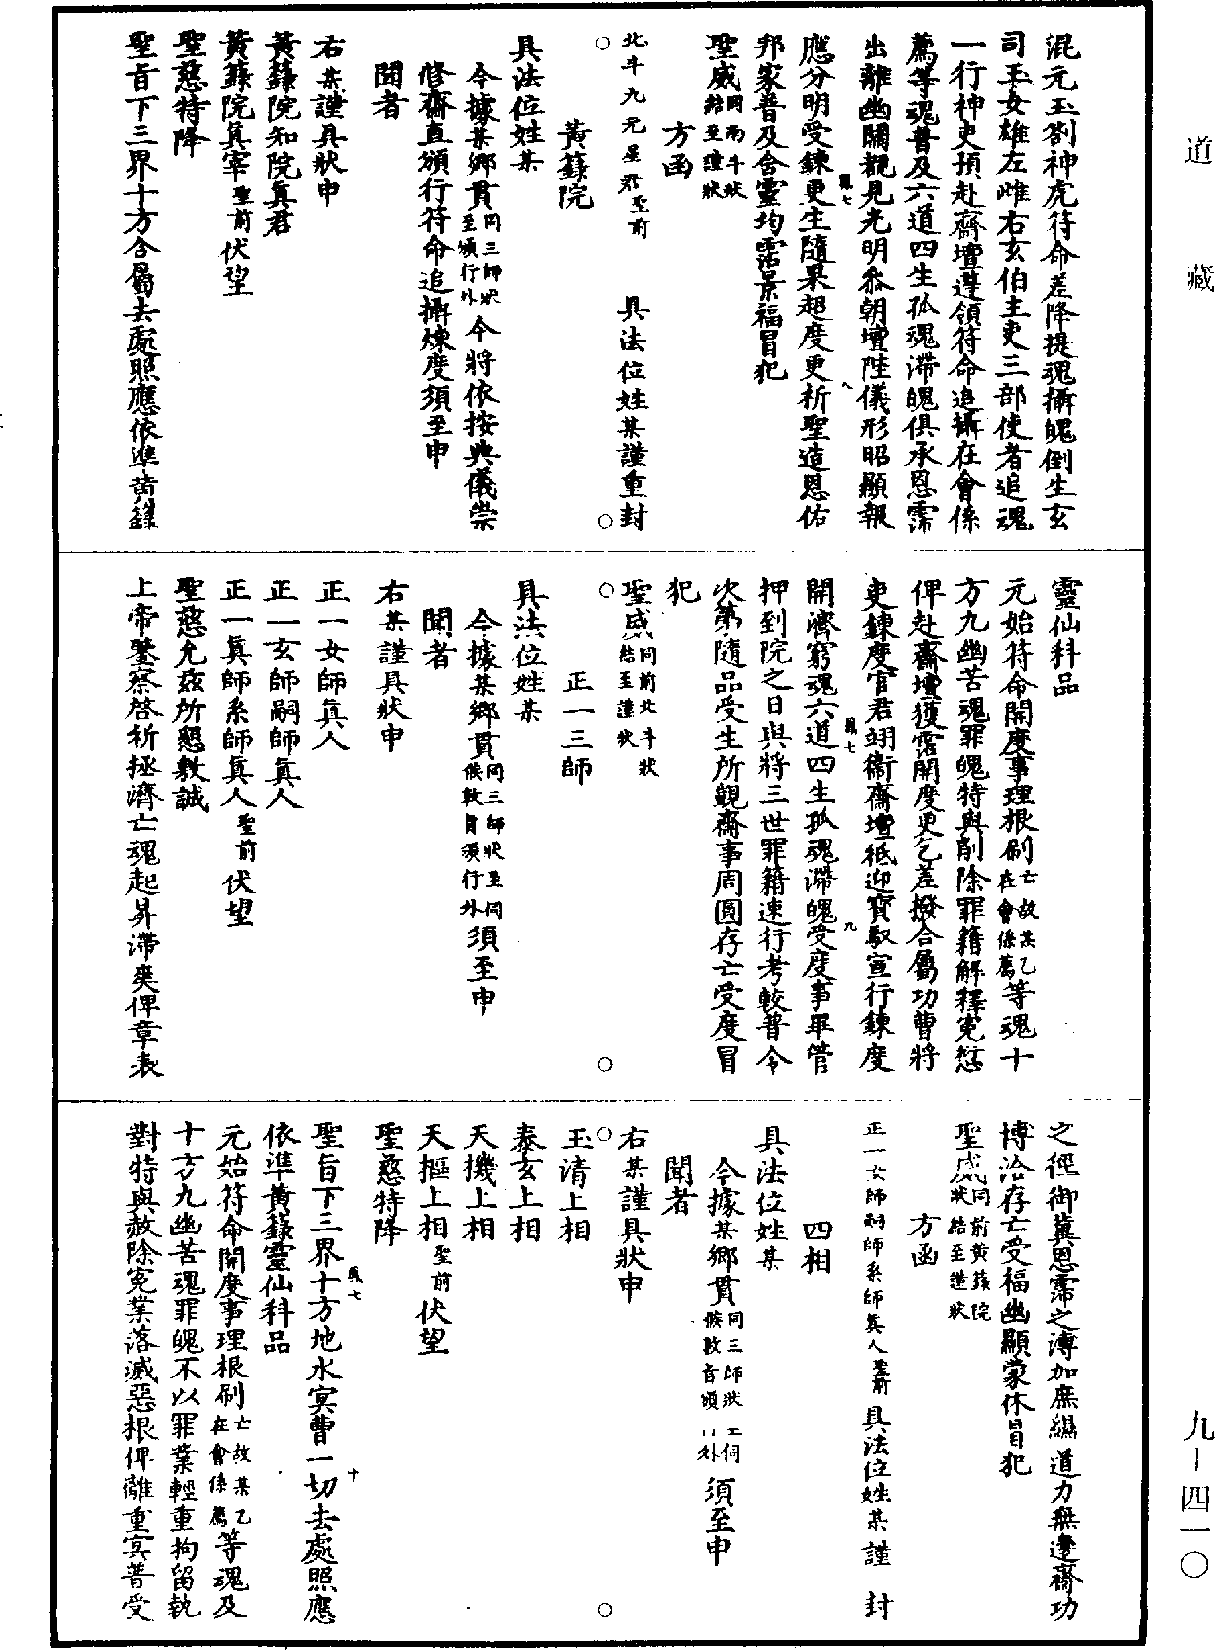 道藏
混元玉劄神虎符命差降提魂攝魄倒生玄
司玉女雄左雌右玄伯主吏三部使者追魂
一行神吏預赴齋壇遵領符命追攝在會係
薦等魂普及六道四生孤魂滯魄俱承恩霈
出離幽關覩見光明叅朝壇陛儀形昭顯報
鳳七 八
應分明受鍊更生隨果超度更祈聖造恩佑
邦家普及含靈均霑景福冒犯
聖威同南斗狀結至謹狀
方函
北斗九元星君聖前 具法位姓某謹重封
○ ○
黃籙院
具法位姓某
今據某鄉貫同三師狀至頒行外今將依按典儀崇
修齋直頒行符命追攝煉度須至申
聞者
右某謹具狀申
黃籙院知院真君
黃籙院真宰聖前伏望
聖慈特降
聖旨下三界十方合屬去處照應依準黃籙
靈仙科品
元始符命開度事理根刷亡故某乙在會係薦等魂十
方九幽苦魂罪魄特與削除罪籍解釋寃愆
俾赴齋壇獲霑開度更乞差撥合屬功曹將
吏鍊度官君翊衞齋壇祗迎寶馭宣行鍊度
鳳七 九
開濟窮魂六道四生孤魂滯魄受度事畢管
押到院之日與將三世罪籍速行考較普令
次第隨品受生所覬齋事周圓存亡受度冒
犯
聖威同前北斗狀結至謹狀
○ ○
正一三師
具法位姓某
今據某鄉貫同三師狀至伺候敕旨頒行外須至申
聞者
右某謹具狀申
正一女師真人
正一玄師嗣師真人
正一真師系師真人聖前伏望
聖慈允茲所懇敷誠
上帝鑒察啓祈拯濟亡魂起昇滯爽俾章表
之徑御冀恩霈之溥加庶繩道力無邊齋功
博洽存亡受福幽顯蒙休冒犯
聖威同前黃籙院狀結至謹狀
方函
正一女師嗣師系師真人聖前 具法位姓某謹 封
四相
具法位姓某
今據某鄉貫同三師狀至伺候敕旨頒行外須至申
聞者
右某謹具狀申
○ ○
玉清上相
泰玄上相
天機上相
天樞上相聖前伏望
聖慈特降
鳳七 十
聖旨下三界十方地水冥曹一切去處照應
依準黃籙靈仙科品
元始符命開度事理根刷亡故某乙在會係薦等魂及
十方九幽苦魂罪魄不以罪業輕重拘留執
對特與赦除寃業落滅惡根俾離重冥普受
九—四一〇